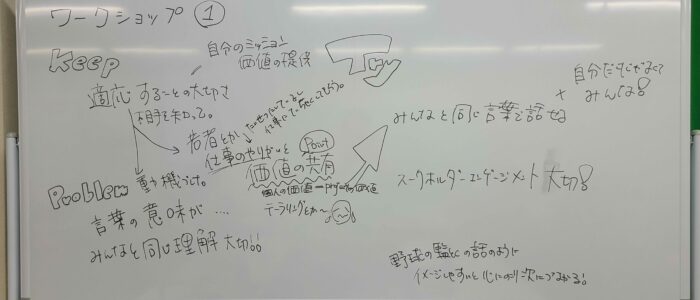 ワークショップ ①
Keep
自分のミッション
価値の提供
Try
適応することの大切さ
相手を知って。
若者とか
仕事のやりがいと
Point
価値の共有
個人の価値
テーラリングとか〜
動機づけ。
Problem
言葉の意味が....
みんなと同じ理解大切!!
自分だけじゃなくて
みんな!
+
みんなと同じ言葉で話せる
ステークホルダーエンゲージメント 大切!
野球の監督の話のように
イメージしやすいと心にのり次につながる!